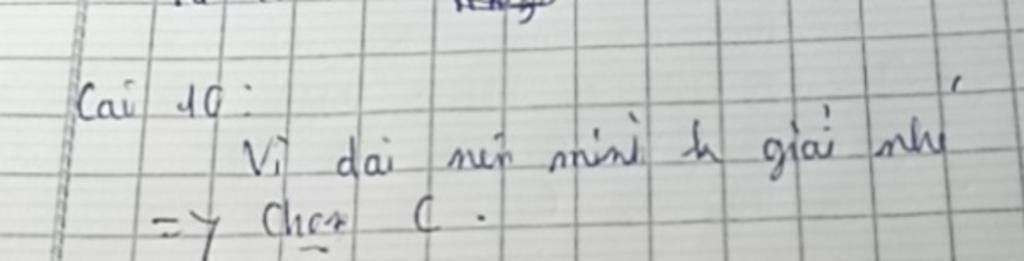 Cai 10:
Vì dai nên mình k giải nhé
=> Chọn C.